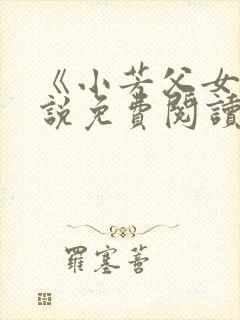 《小芳父女
說免費閱讀
羅塞善